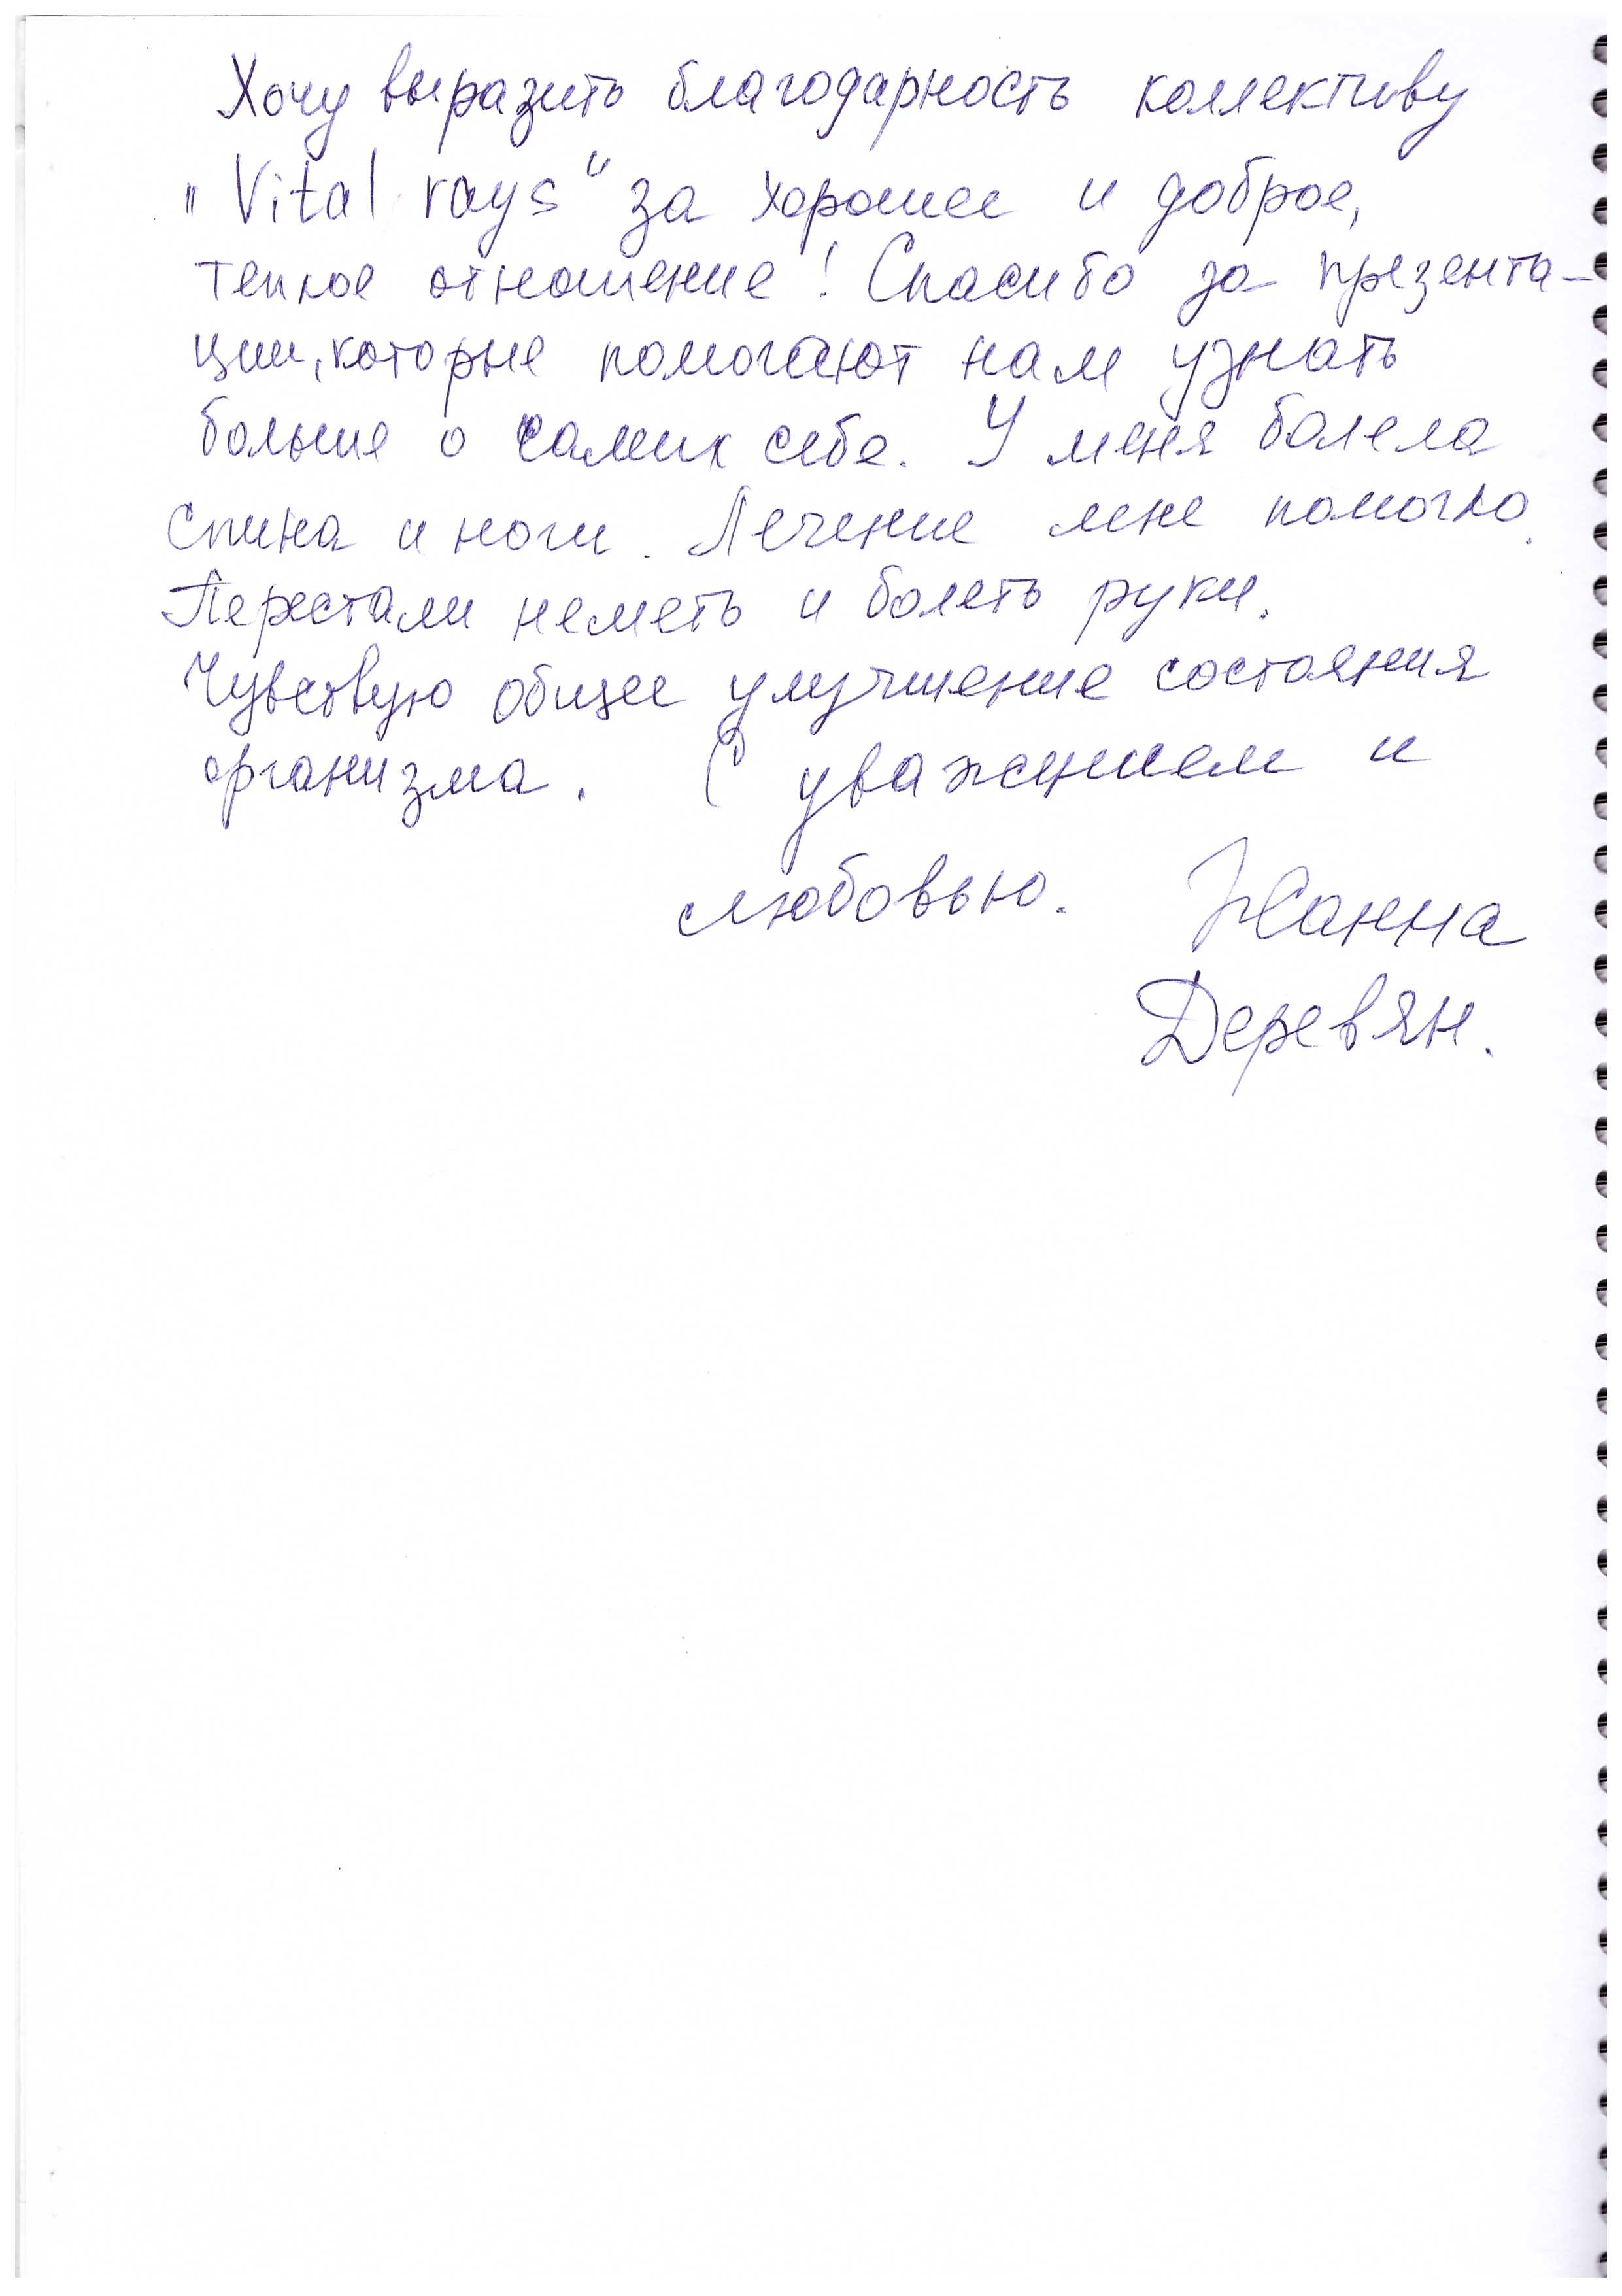 Хочу выразить благодарность коллективу
„Vital rays“ за хорошее и доброе,
теплое отношение! Спасибо за презента-
ции, которые помогают нам узнать
больше о самих себе. У меня болела
спина и ноги. Лечение мне помогло.
Перестали неметь и болеть руки.
Чувствую общее улучшение состояния
организма. С уважением и
любовью. Жанна
Деревян.